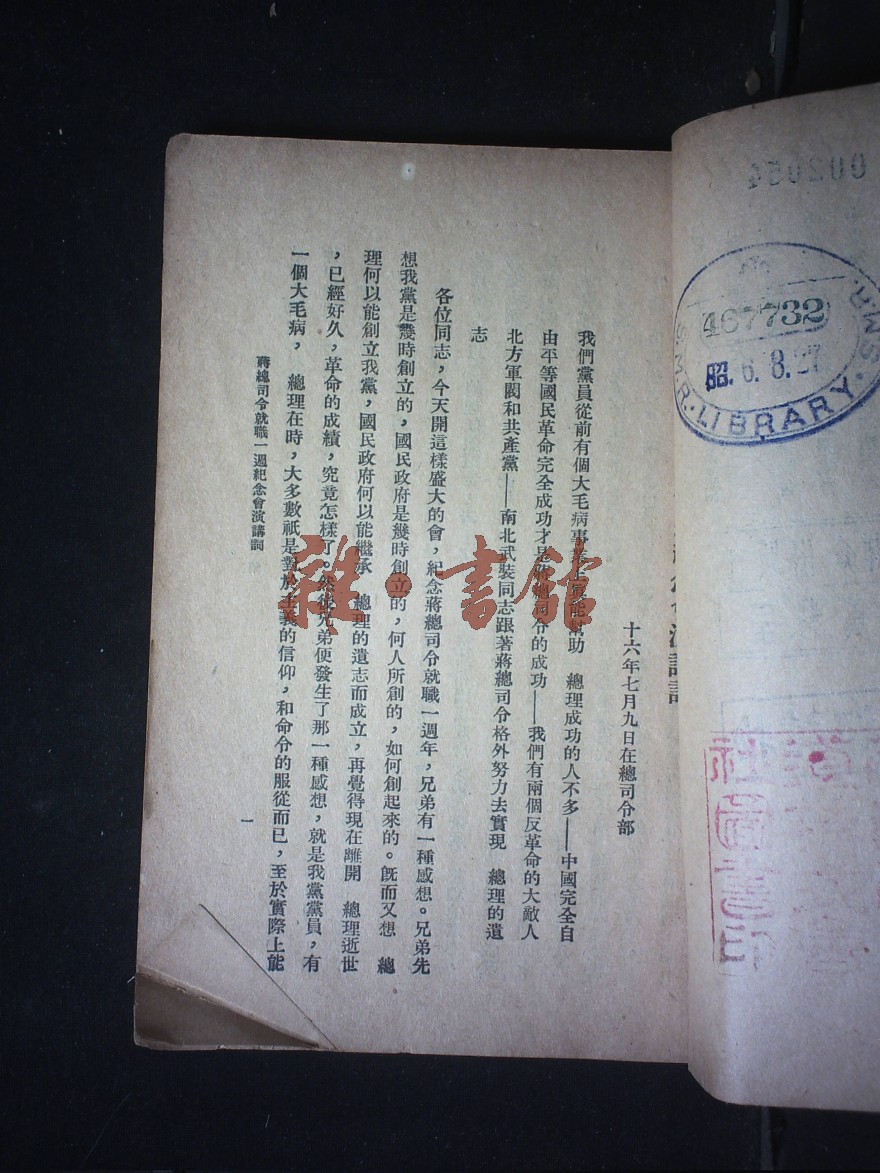 十六年七月九日在總司令部
我們黨員從前有個大毛病事業上眞能幫助　總理成功的人不多——中國完全自
由平等國民革命完全成功才是蔣總司令的成功——我們有兩個反革命的大敵人
北方軍閥和共產黨——南北武裝同志跟著蔣總司令格外努力去實現　總理的遺
志
各位同志，今天開這樣盛大的會，紀念蔣總司令就職一週年，兄弟有一種感想。兄弟先
想我黨是幾時創立的，國民政府是幾時創立的，何人所創的，如何創起來的。既而又想　總
理何以能創立我黨，國民政府何以能繼承　總理的遺志而成立，再覺得現在離開　總理逝世
，已經好久，革命的成績，究竟怎樣了。然後兄弟便發生了那一種感想，就是我黨黨員，有
一個大毛病，　總理在時，大多數祇是對於主義的信仰，和命令的服從而已，至於實際上能
蔣總司令就職一週紀念會演講詞
一
雜·書館
002054
S.M.R. LIBRARY
467732
昭. 6. 8. 27